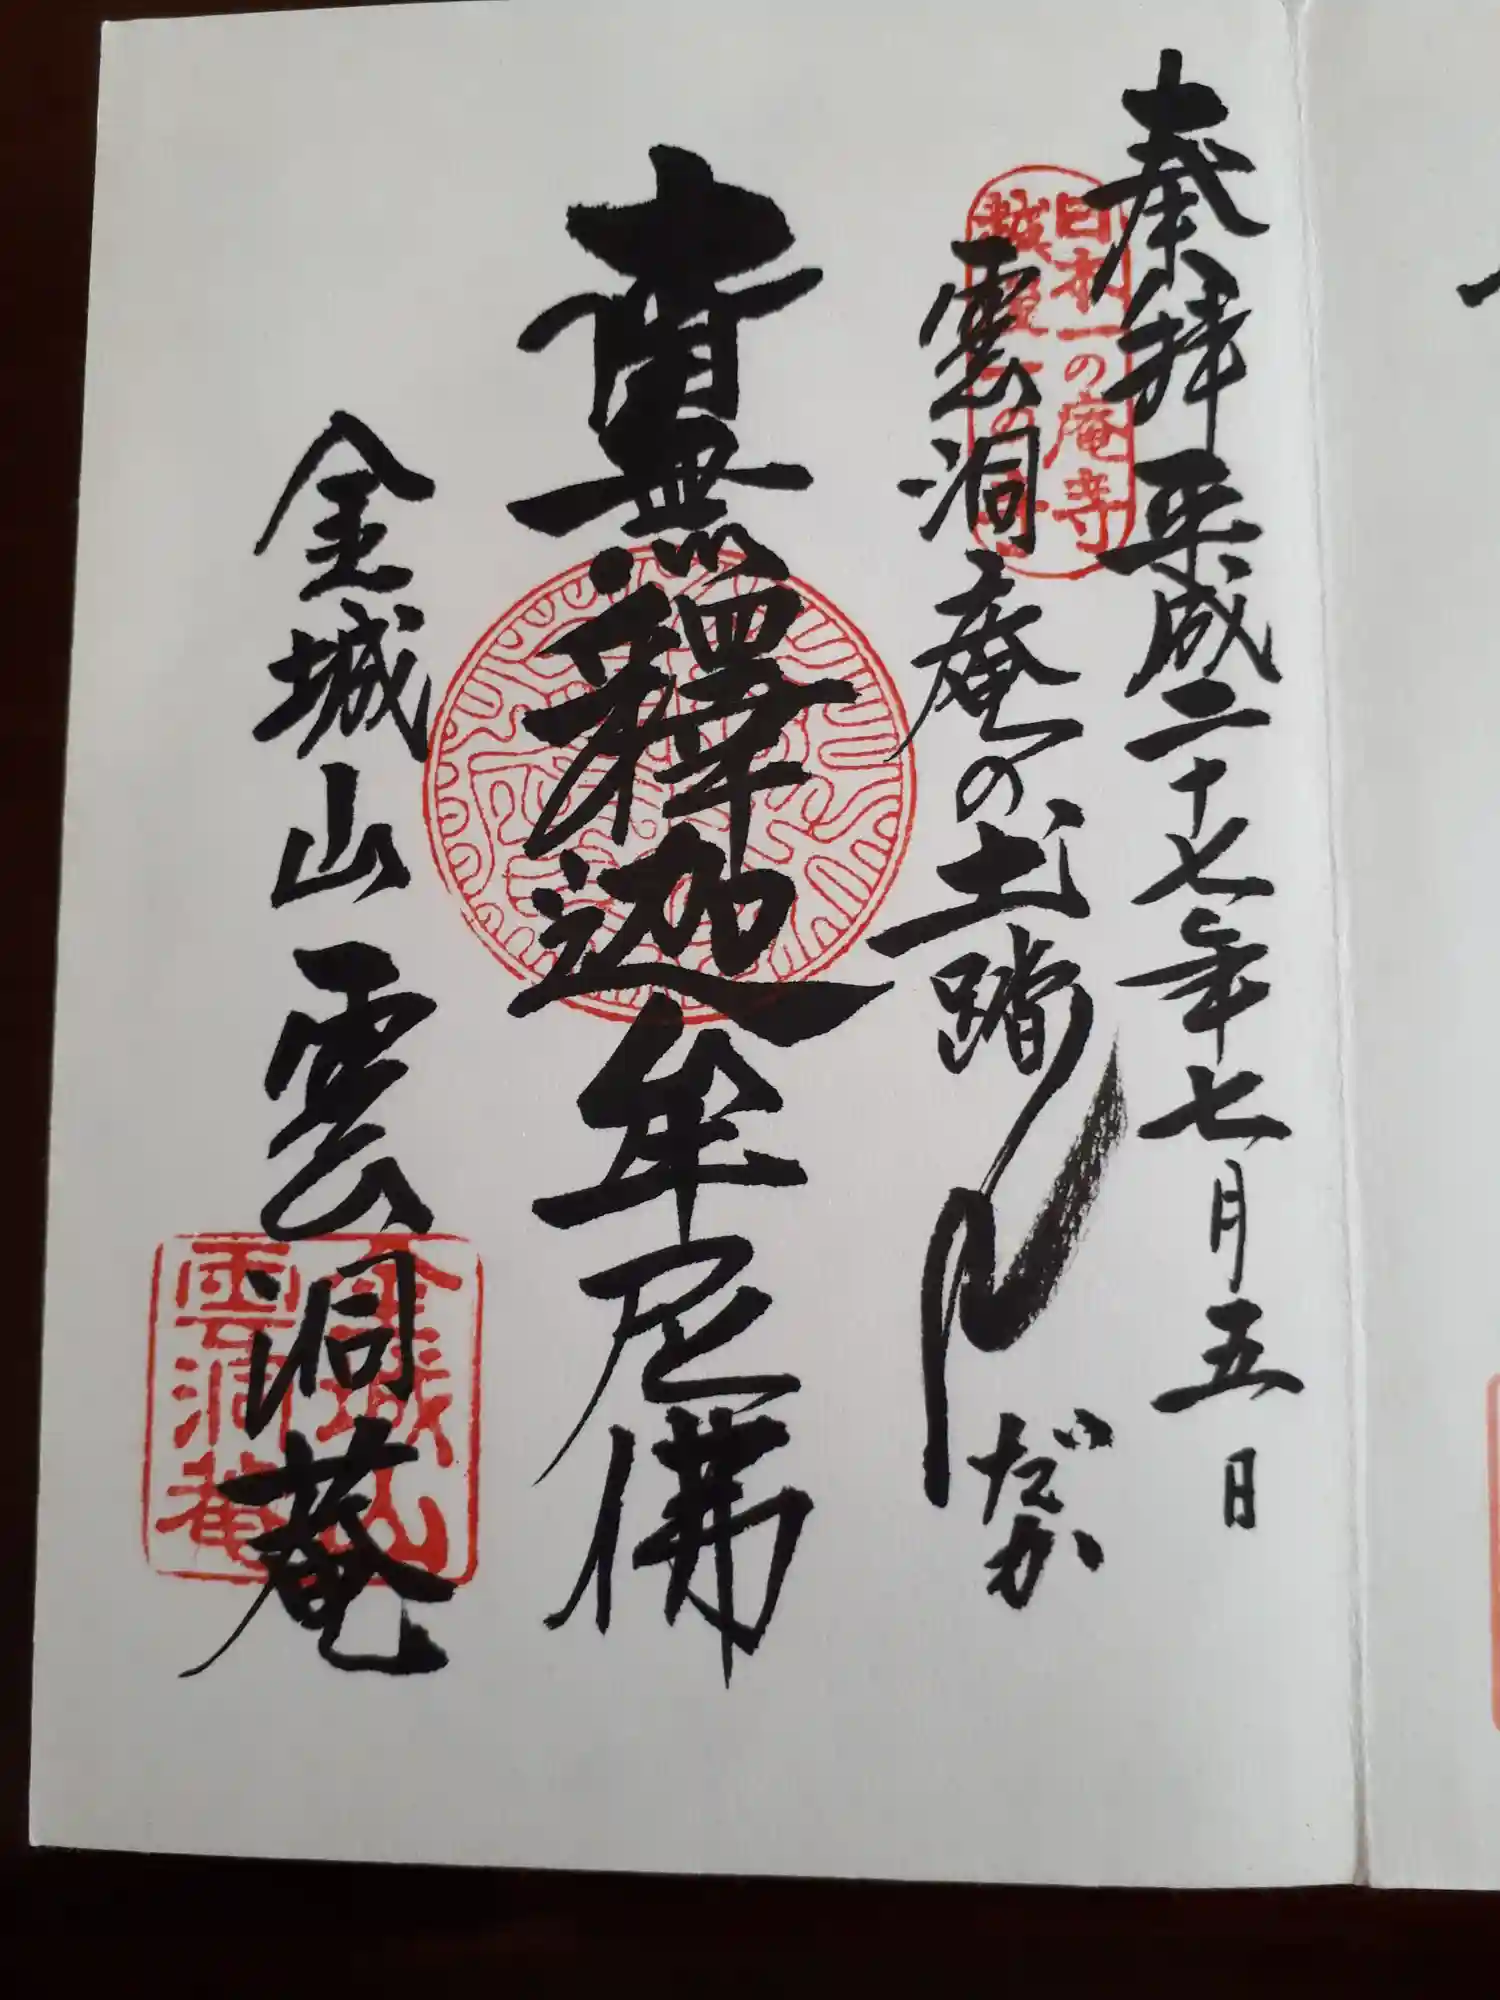 奉拝 平成二十七年七月五日
日本一の庵寺
雲洞庵の土踏んだか
南無釋迦牟尼佛
金城山 雲洞庵
金城山
雲洞庵